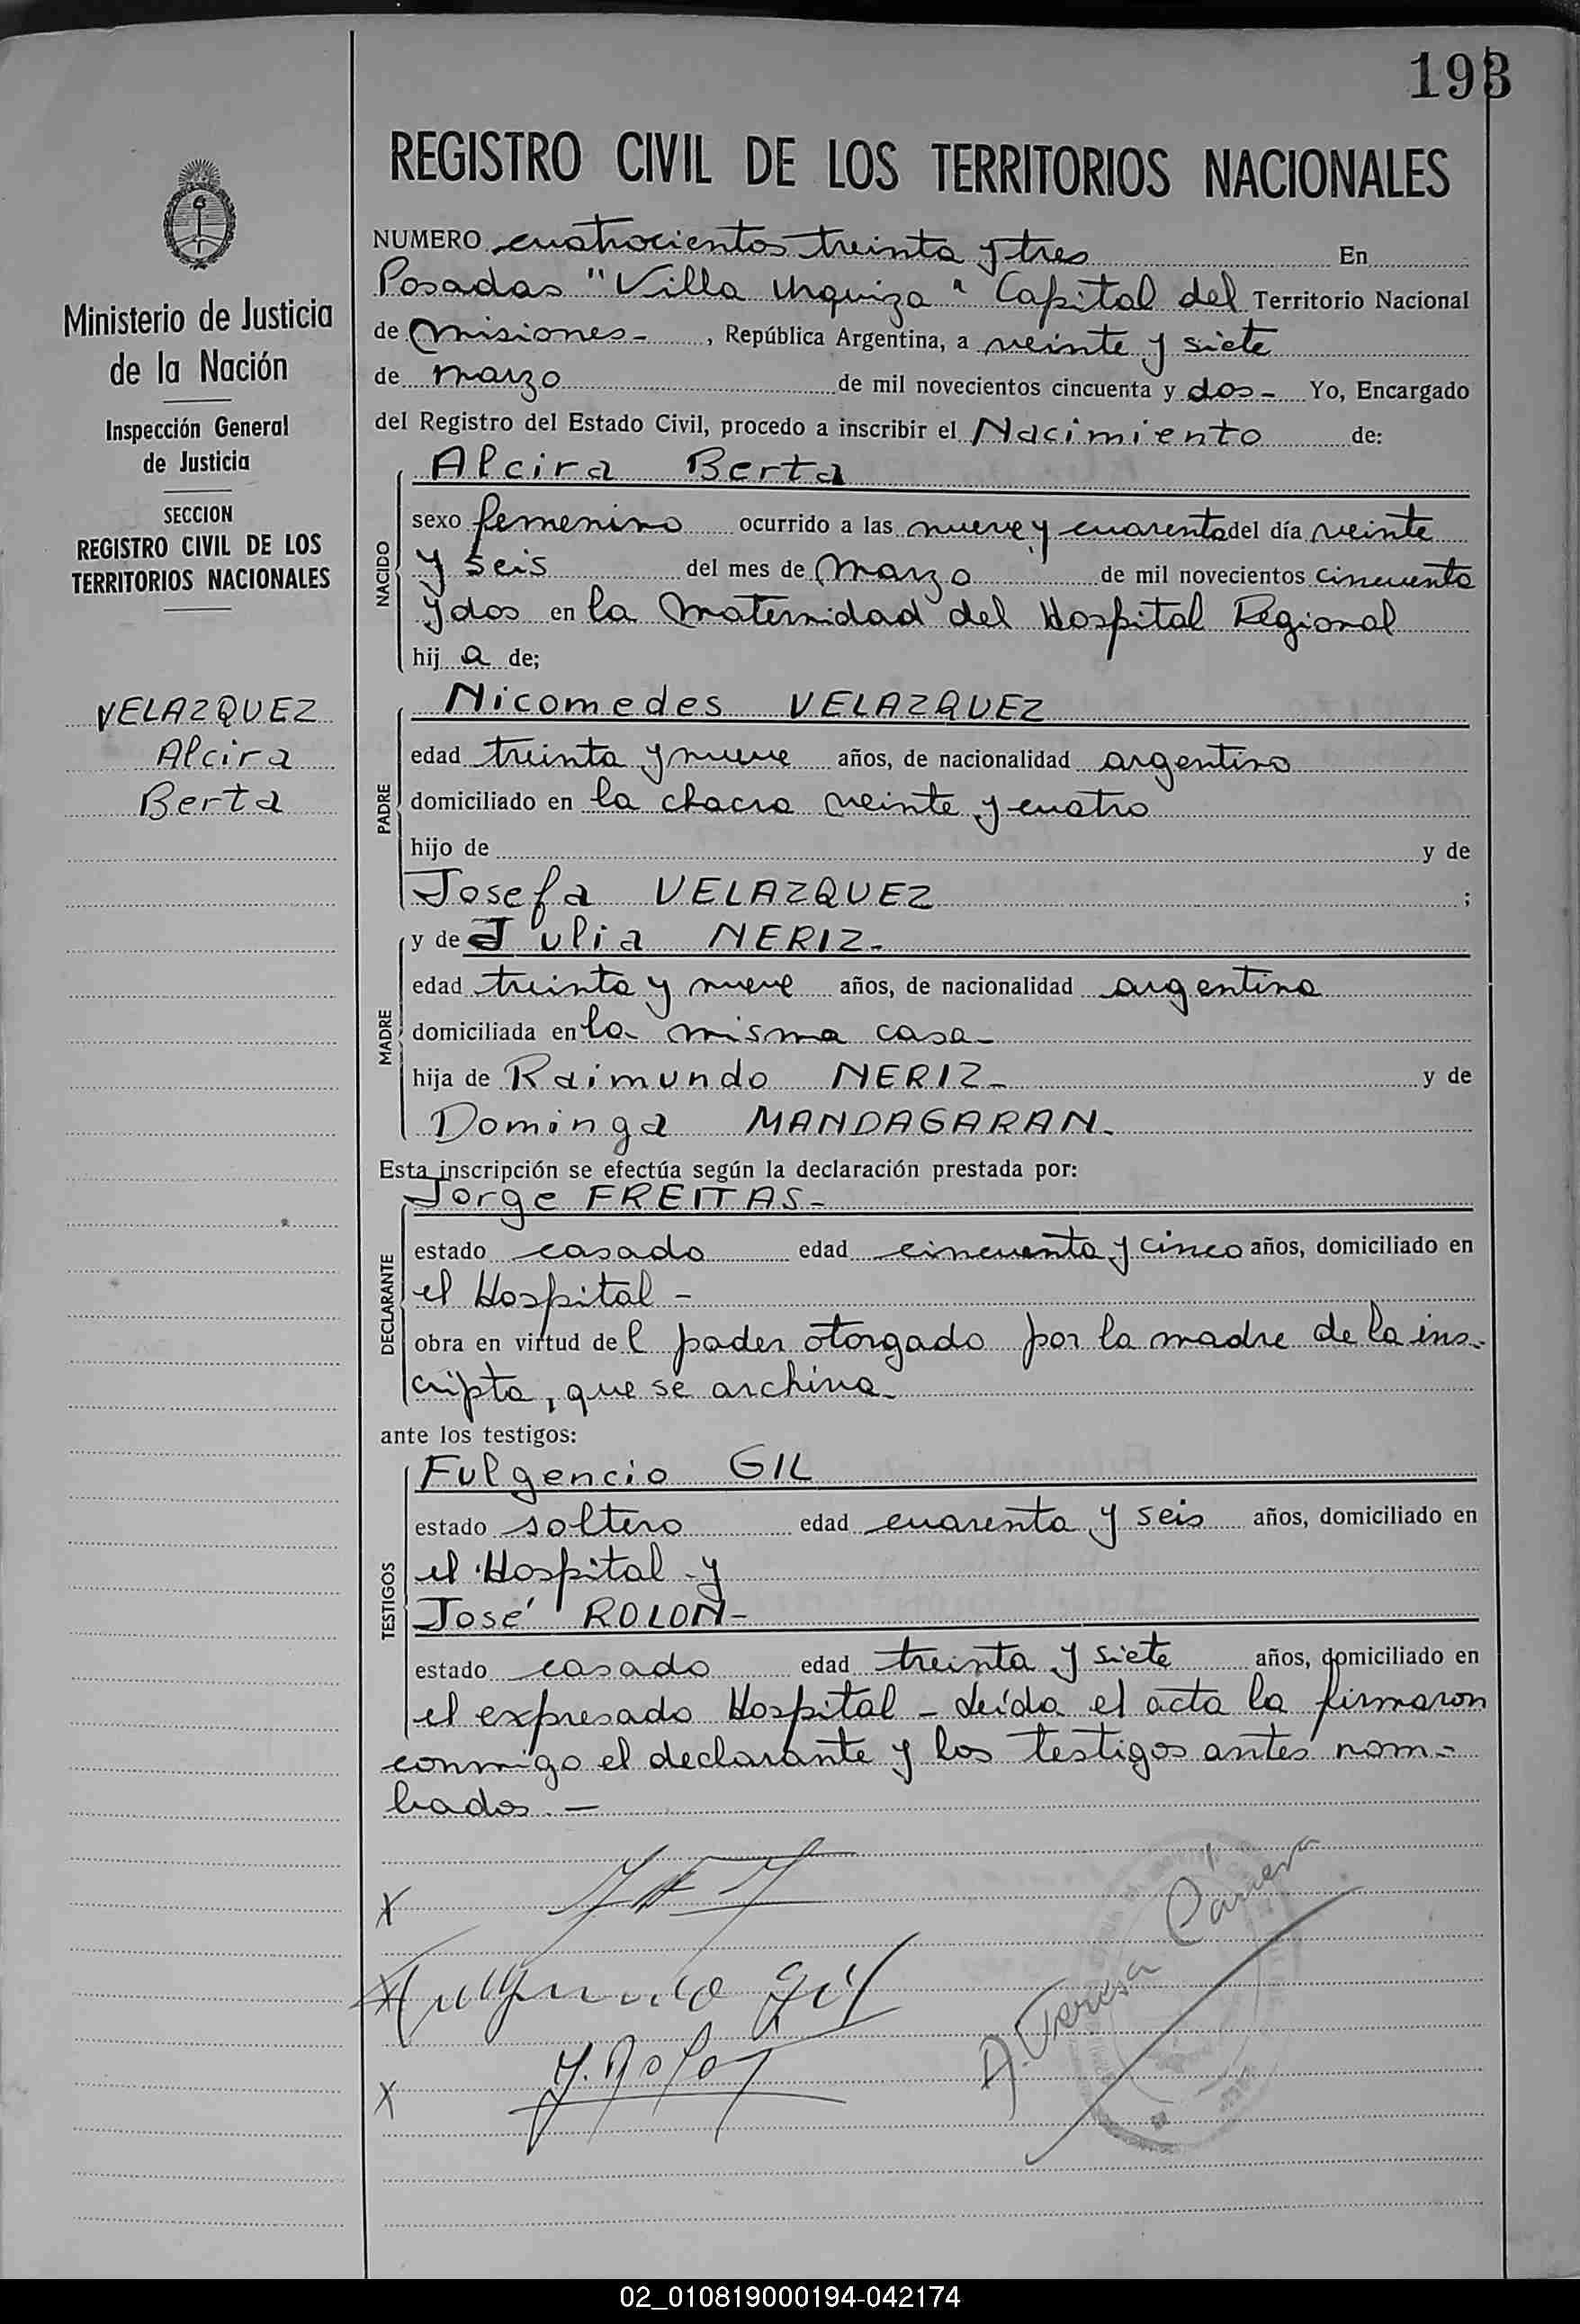 193
REGISTRO CIVIL DE LOS TERRITORIOS NACIONALES
Ministerio de Justicia
de la Nación
Inspección General
de Justicia
SECCION
REGISTRO CIVIL DE LOS
TERRITORIOS NACIONALES
VELAZQUEZ
Alcira
Berta
NUMERO cuatrocientos treinta y tres En
Posadas "Villa Urquiza" Capital del Territorio Nacional
de Misiones - , República Argentina, a veinte y siete
de marzo de mil novecientos cincuenta y dos - Yo, Encargado
del Registro del Estado Civil, procedo a inscribir el Nacimiento de:
NACIDO
Alcira Berta
sexo femenino ocurrido a las nueve y cuarenta del día veinte
y seis del mes de Marzo de mil novecientos cincuenta
y dos en la Maternidad del Hospital Regional
hij a de;
PADRE
Nicomedes VELAZQUEZ
edad treinta y nueve años, de nacionalidad argentino
domiciliado en la chacra veinte y cuatro
hijo de y de
Josefa VELAZQUEZ ;
MADRE
y de Julia NERIZ-
edad treinta y nueve años, de nacionalidad argentina
domiciliada en la misma casa-
hija de Raimundo NERIZ- y de
Dominga MANDAGARAN-
Esta inscripción se efectúa según la declaración prestada por:
DECLARANTE
Jorge FREITAS-
estado casado edad cincuenta y cinco años, domiciliado en
el Hospital -
obra en virtud del poder otorgado por la madre de la ins-
cripta, que se archiva-
ante los testigos:
TESTIGOS
Fulgencio GIL
estado soltero edad cuarenta y seis años, domiciliado en
el Hospital y
José ROLON-
estado casado edad treinta y siete años, domiciliado en
el expresado Hospital - Leída el acta la firmaron
conmigo el declarante y los testigos antes nom-
brados. -
X
X Fulgencio Gil
X J. Rolon
02_010819000194-042174